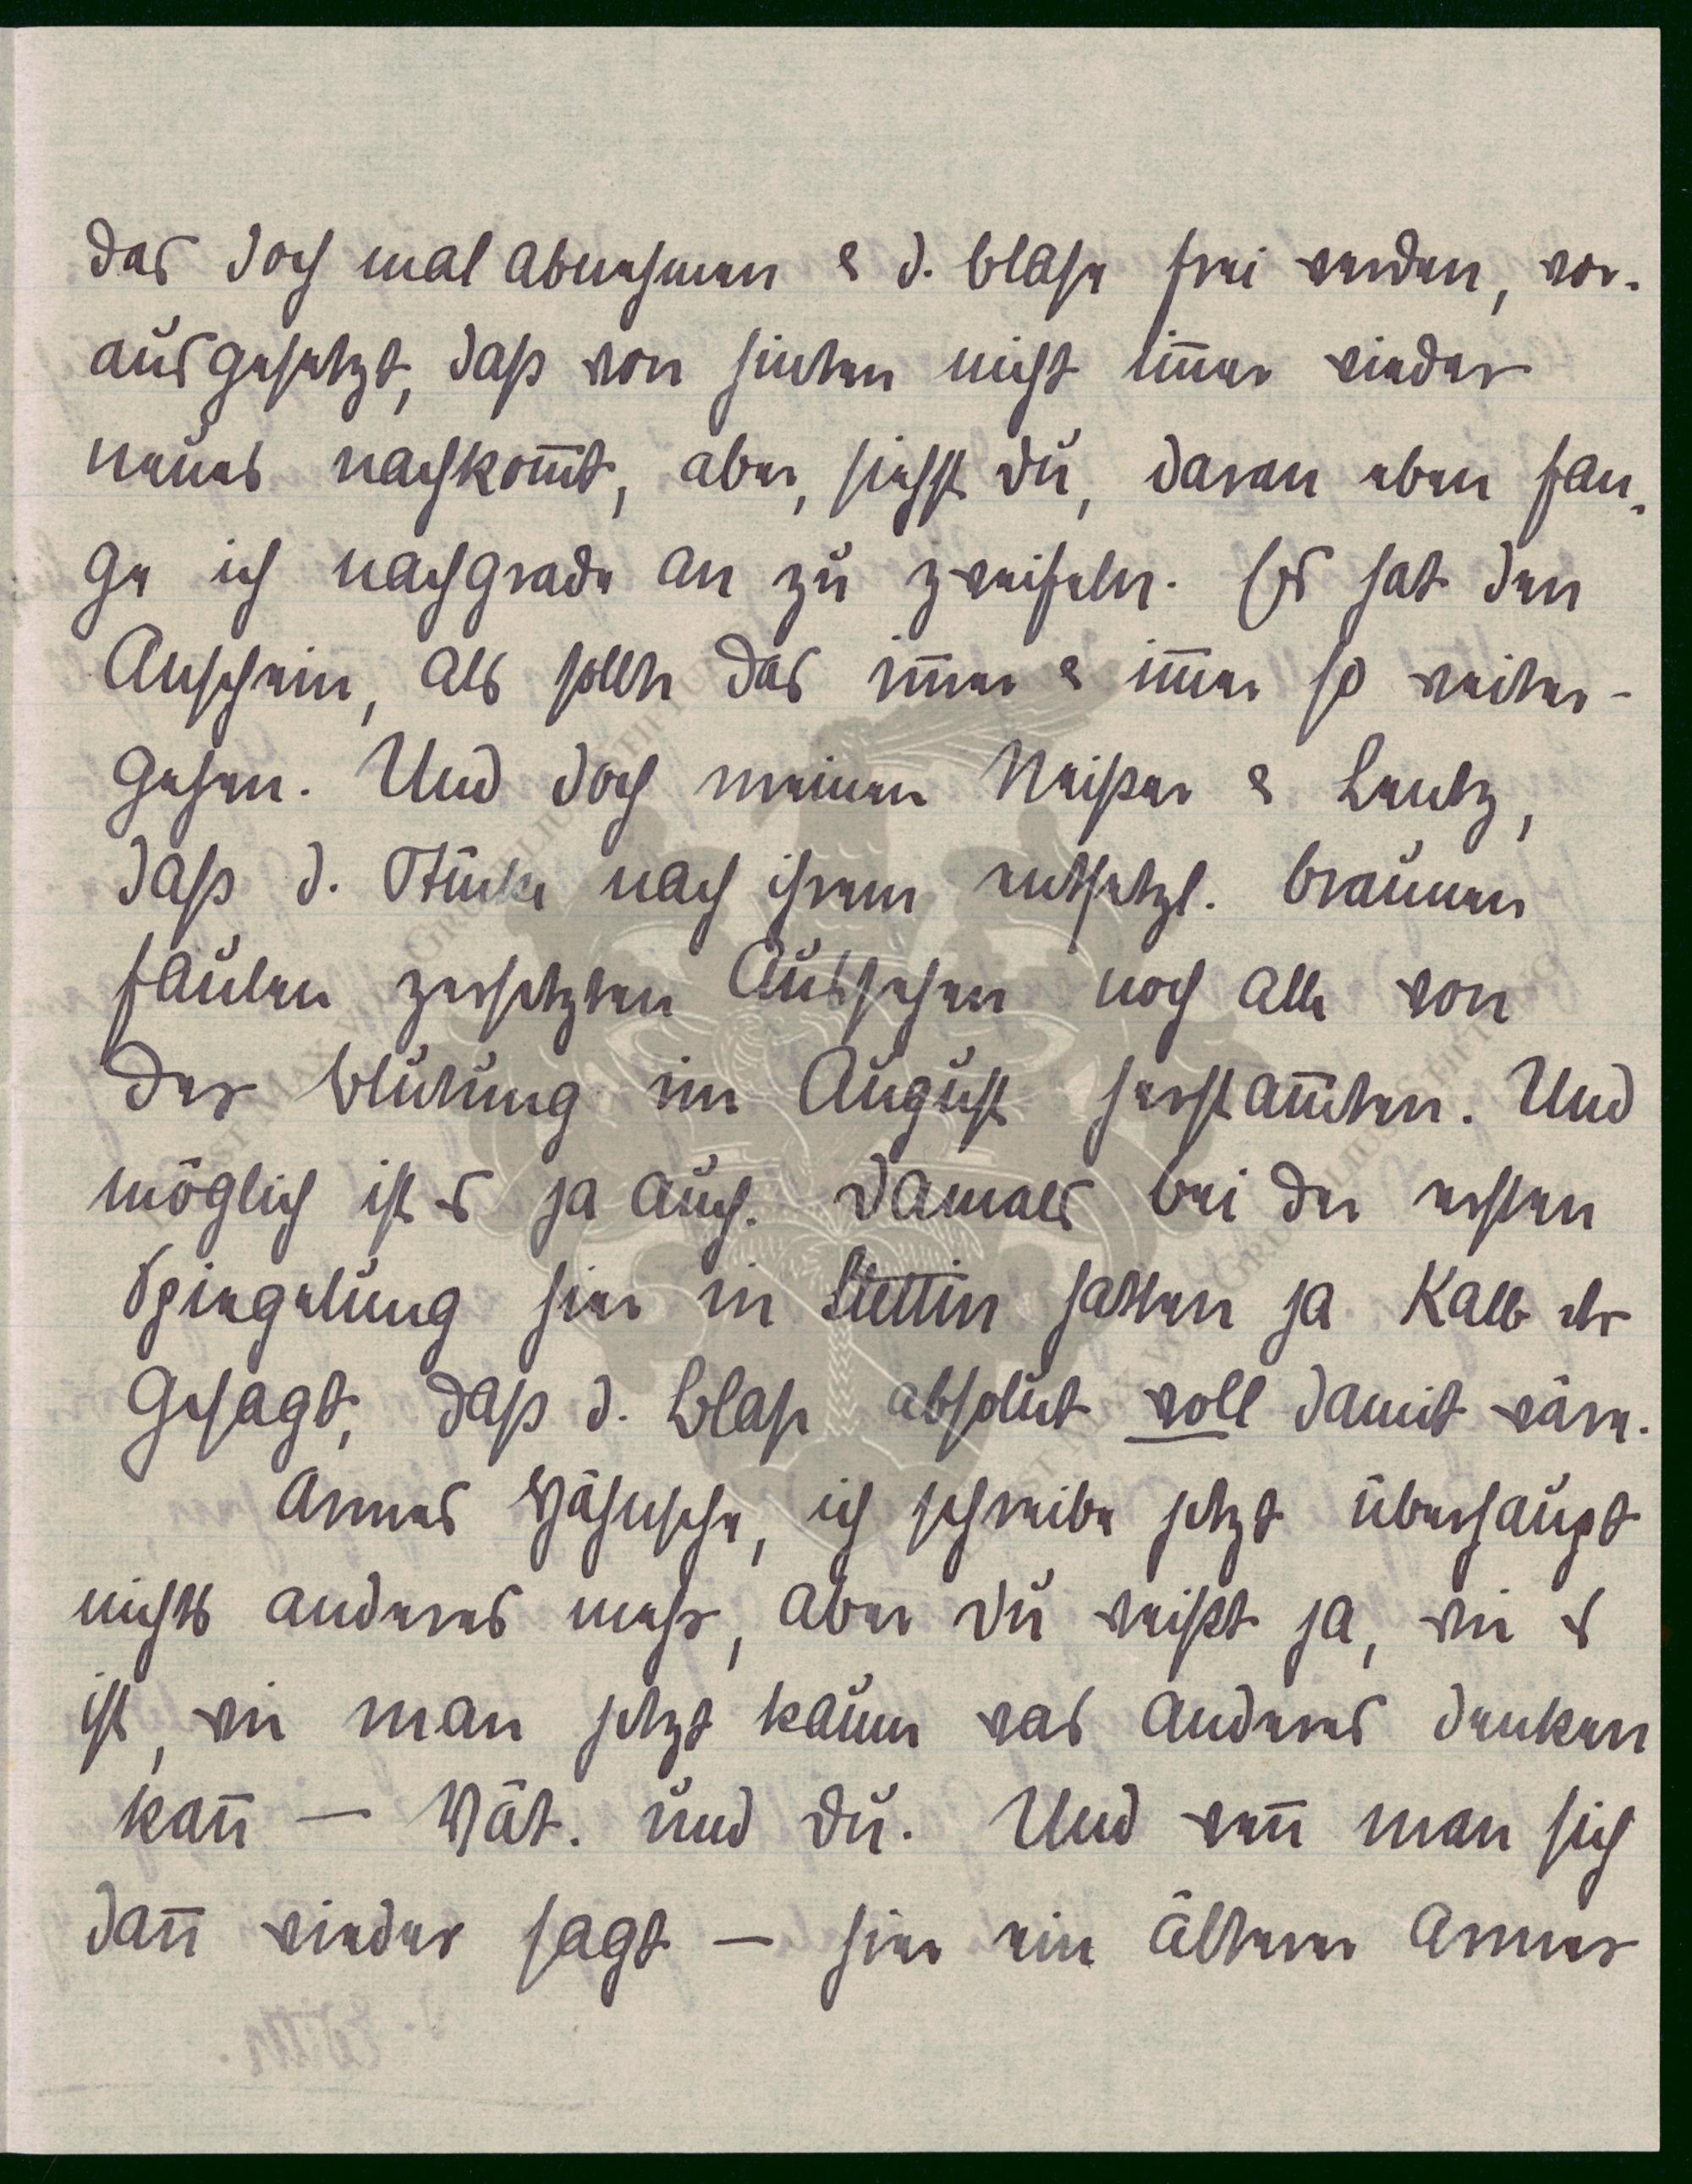 das doch mal abnehmen & d. Blase frei werden, vor-
ausgesetzt, daß von hinten nicht im̄er wieder
neues nachkom̄t, aber, siehst Du, daran eben fan-
ge ich nachgrade an zu zweifeln. Es hat den
Anschein, als sollte das im̄er & im̄er so weiter-
gehen. Und doch meinen Meißner & Lentz,
daß d. Stücke nach ihrem entsetzl. braunen
faulen zersetzten Aussehen noch alle von
der Blutung im August herstam̄ten. Und
möglich ist es ja auch. Damals bei der ersten
Spiegelung hier in Stettin hatten ja Kalb etc
gesagt, daß d. Blase absolut voll damit wäre.
Armes, ich schreibe jetzt überhaupt
nichts anderes mehr, aber Du weißt ja, wie es
ist, wie man jetzt kaum was anderes denken
kan̄ — Vät. und Du. Und wen̄ man sich
dan̄ wieder sagt — hier ein älterer armer
ERNST MAX VON GRUMBLIUS STIFTUNG